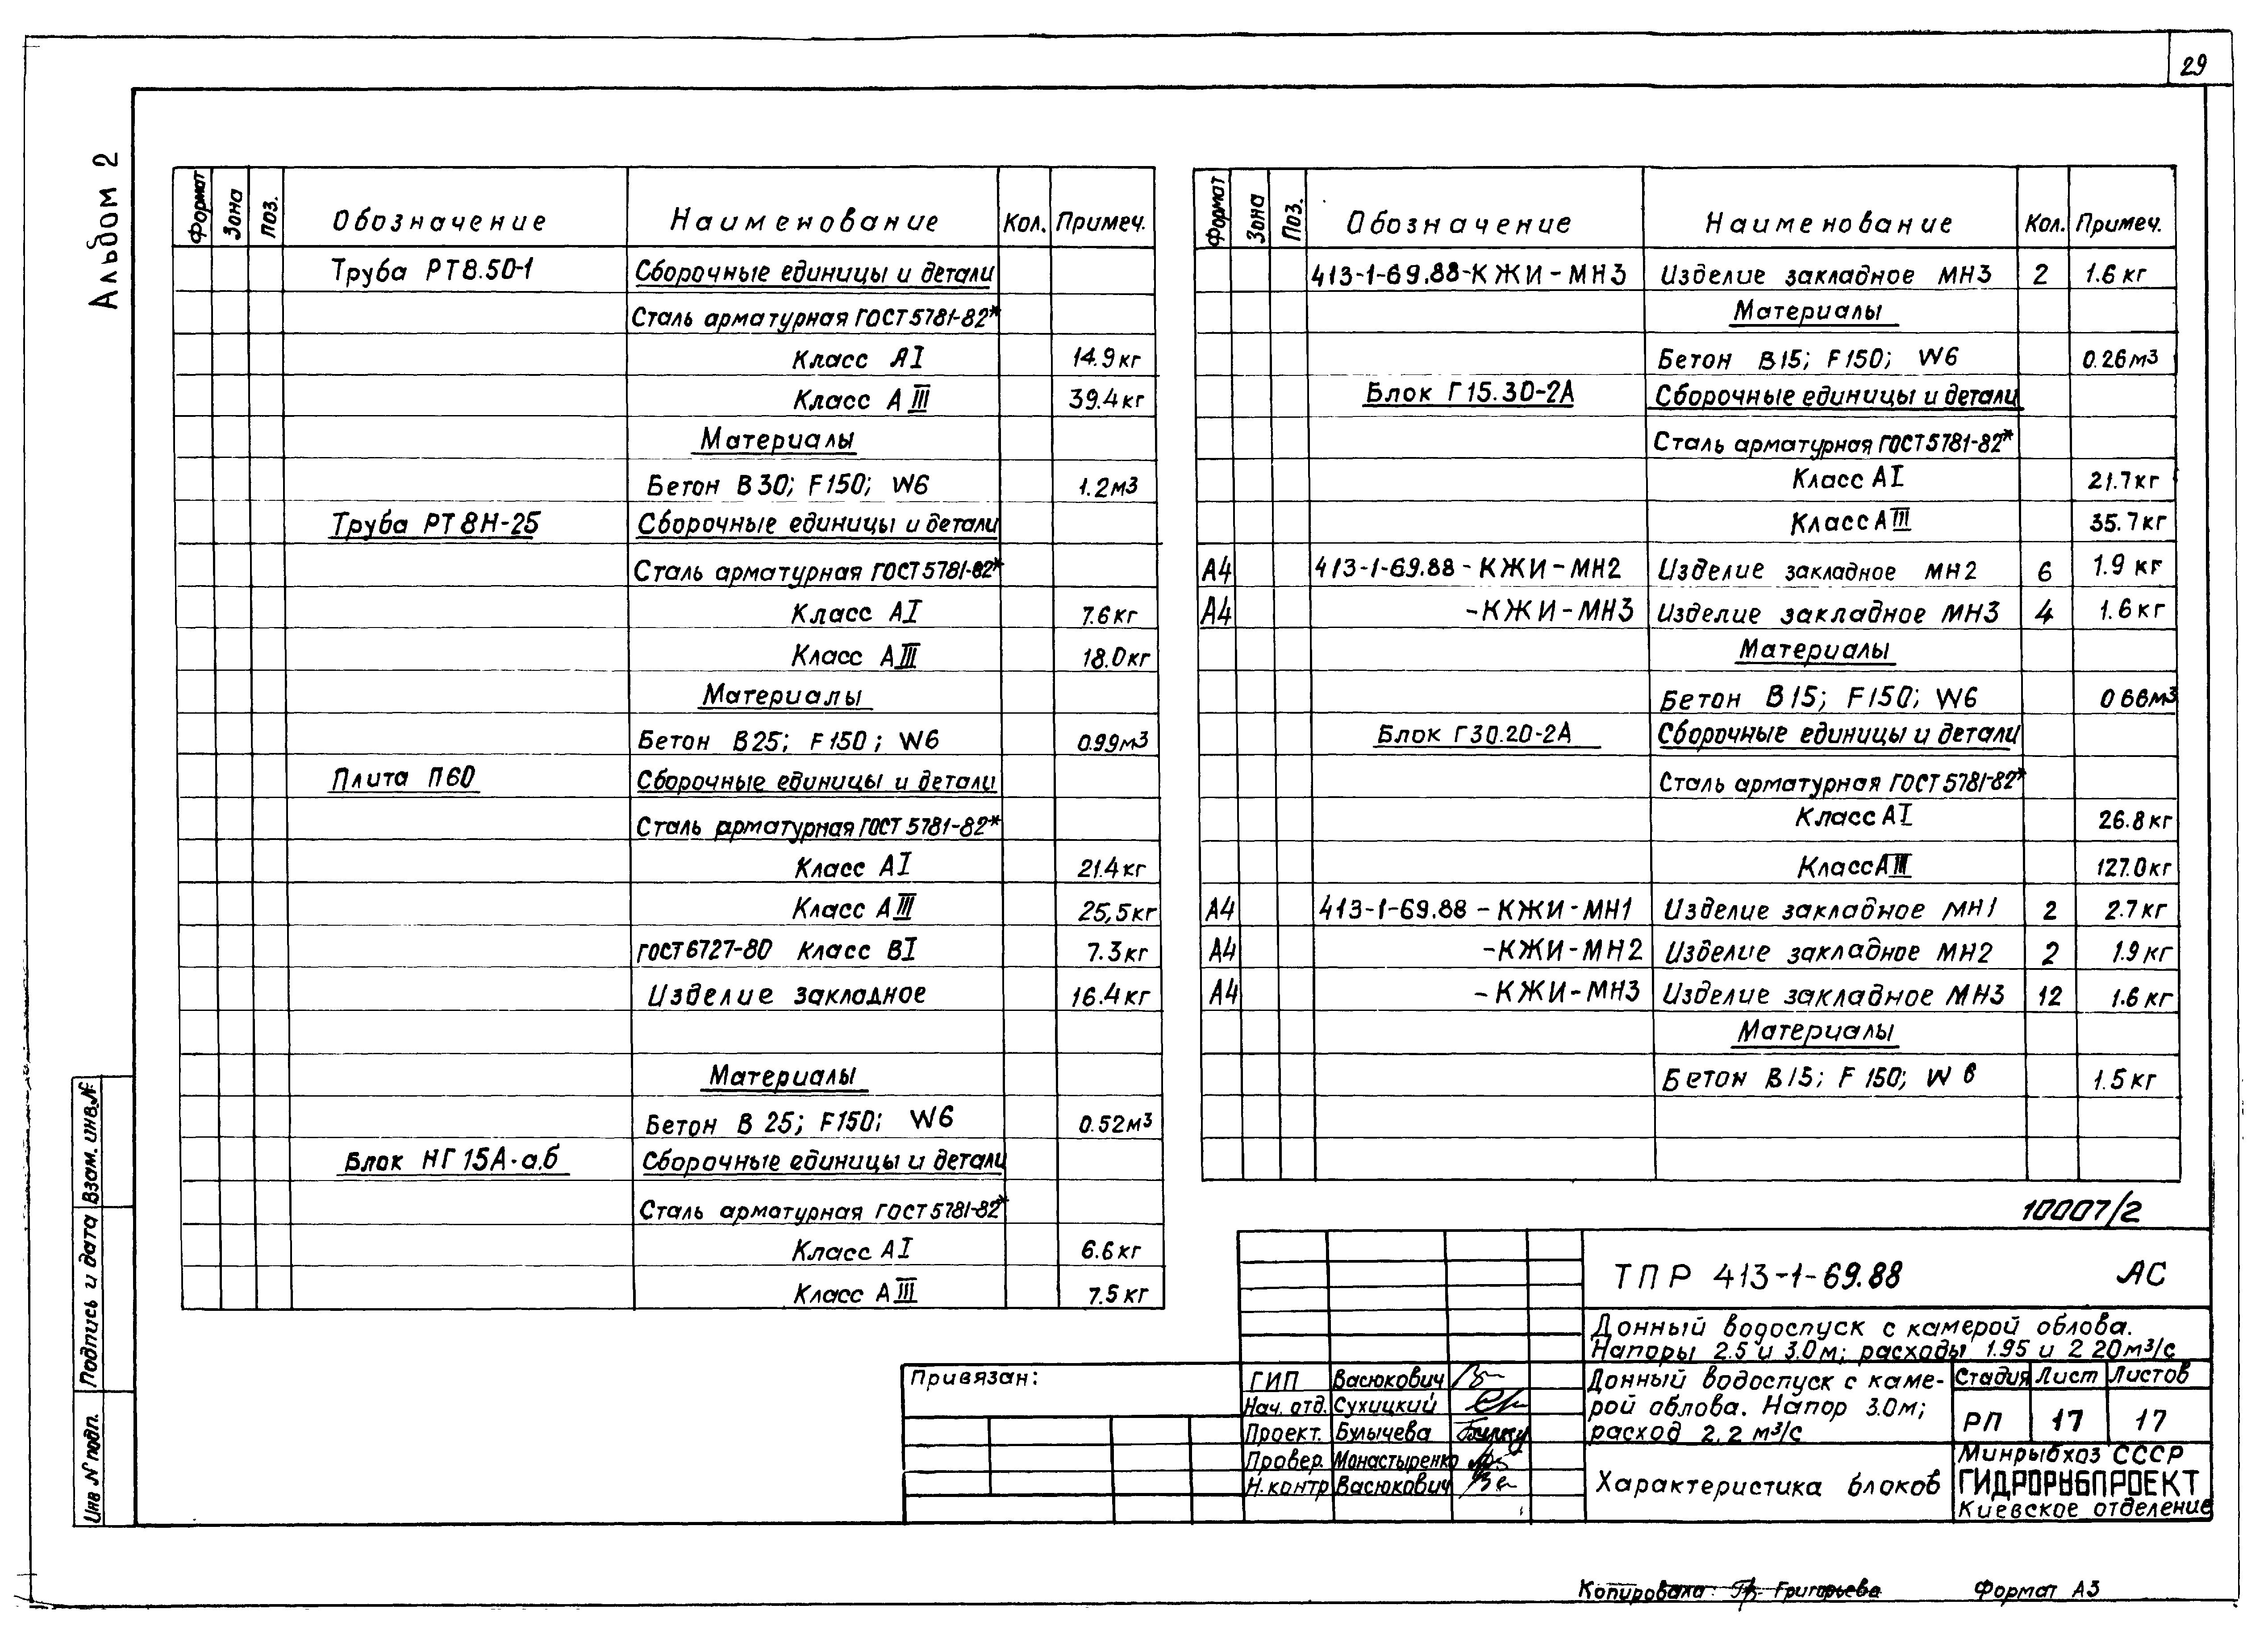 29
Альбом 2
Формат Зона Поз. Обозначение Наименование Кол. Примеч.
Труба РТ8.50-1 Сборочные единицы и детали
Сталь арматурная ГОСТ 5781-82*
Класс АI 14.9кг
Класс АIII 39.4кг
Материалы
Бетон В30; F150; W6 1.2м3
Труба РТ8Н-25 Сборочные единицы и детали
Сталь арматурная ГОСТ 5781-82*
Класс АI 7.6кг
Класс АIII 18.0кг
Материалы
Бетон В25; F150; W6 0.99м3
Плита П60 Сборочные единицы и детали
Сталь арматурная ГОСТ 5781-82*
Класс АI 21.4кг
Класс АIII 25,5кг
ГОСТ 6727-80 Класс ВI 7.3кг
Изделие закладное 16.4кг
Материалы
Бетон В25; F150; W6 0.52м3
Блок НГ15А-а,б Сборочные единицы и детали
Сталь арматурная ГОСТ 5781-82*
Класс АI 6.6кг
Класс АIII 7.5кг
Формат Зона Поз. Обозначение Наименование Кол. Примеч.
413-1-69.88-КЖИ-МН3 Изделие закладное МН3 2 1.6кг
Материалы
Бетон В15; F150; W6 0.26м3
Блок Г15.30-2А Сборочные единицы и детали
Сталь арматурная ГОСТ 5781-82*
Класс АI 21.7кг
Класс АIII 35.7кг
А4 413-1-69.88-КЖИ-МН2 Изделие закладное МН2 6 1.9кг
А4 -КЖИ-МН3 Изделие закладное МН3 4 1.6кг
Материалы
Бетон В15; F150; W6 0 66м3
Блок Г30.20-2А Сборочные единицы и детали
Сталь арматурная ГОСТ 5781-82*
Класс АI 26.8кг
Класс АIII 127.0кг
А4 413-1-69.88-КЖИ-МН1 Изделие закладное МН1 2 2.7кг
А4 -КЖИ-МН2 Изделие закладное МН2 2 1.9кг
А4 -КЖИ-МН3 Изделие закладное МН3 12 1.6кг
Материалы
Бетон В15; F150; W6 1.5кг
10007/2
ТПР 413-1-69.88 АС
Донный водоспуск с камерой облова.
Напоры 2.5 и 3.0м; расходы 1.95 и 2 20м3/с
Привязан:
ГИП Васюкович
Нач. отд. Сухицкий
Проект. Булычева
Провер. Монастыренко
Н.контр Васюкович
Донный водоспуск с каме-
рой облова. Напор 3.0м;
расход 2.2 м3/с
Стадия Лист Листов
РП 17 17
Характеристика блоков
Минрыбхоз СССР
ГИДРОРЫБПРОЕКТ
Киевское отделение
Инв N подл. Подпись и дата Взам. инв.№
Копировала: Григорьева Формат А3